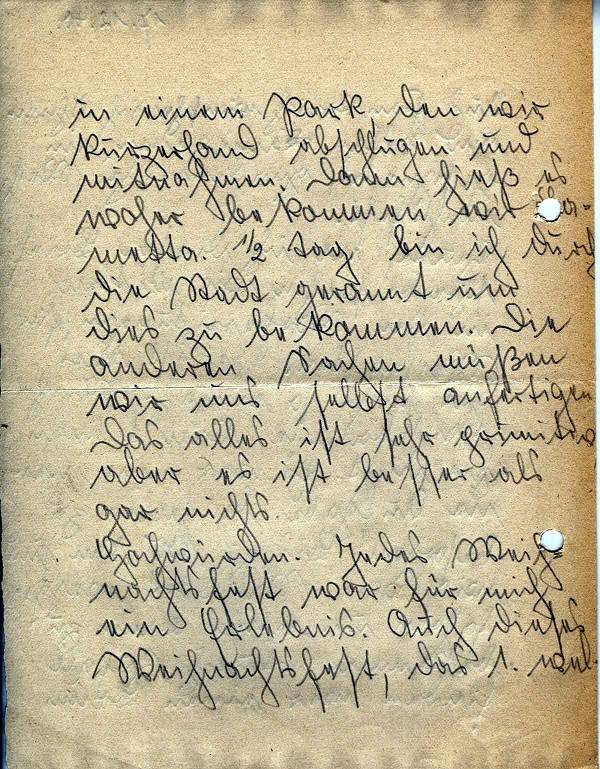 in einem Park, den wir
kurzerhand abschlugen und
mitnahmen. Dann hieß es
woher bekommen wir La-
metta. 1/2 Tag bin ich durch
die Stadt gerannt um
dies zu bekommen. Die
anderen Sachen müßen
wir uns selbst anfertigen
Das alles ist sehr primitiv
aber es ist besser als
gar nichts.
Hochwürden. Jedes Weih-
nachtsfest war für mich
ein Erlebnis. Auch dieses
Weihnachtsfest, das 1. wel-